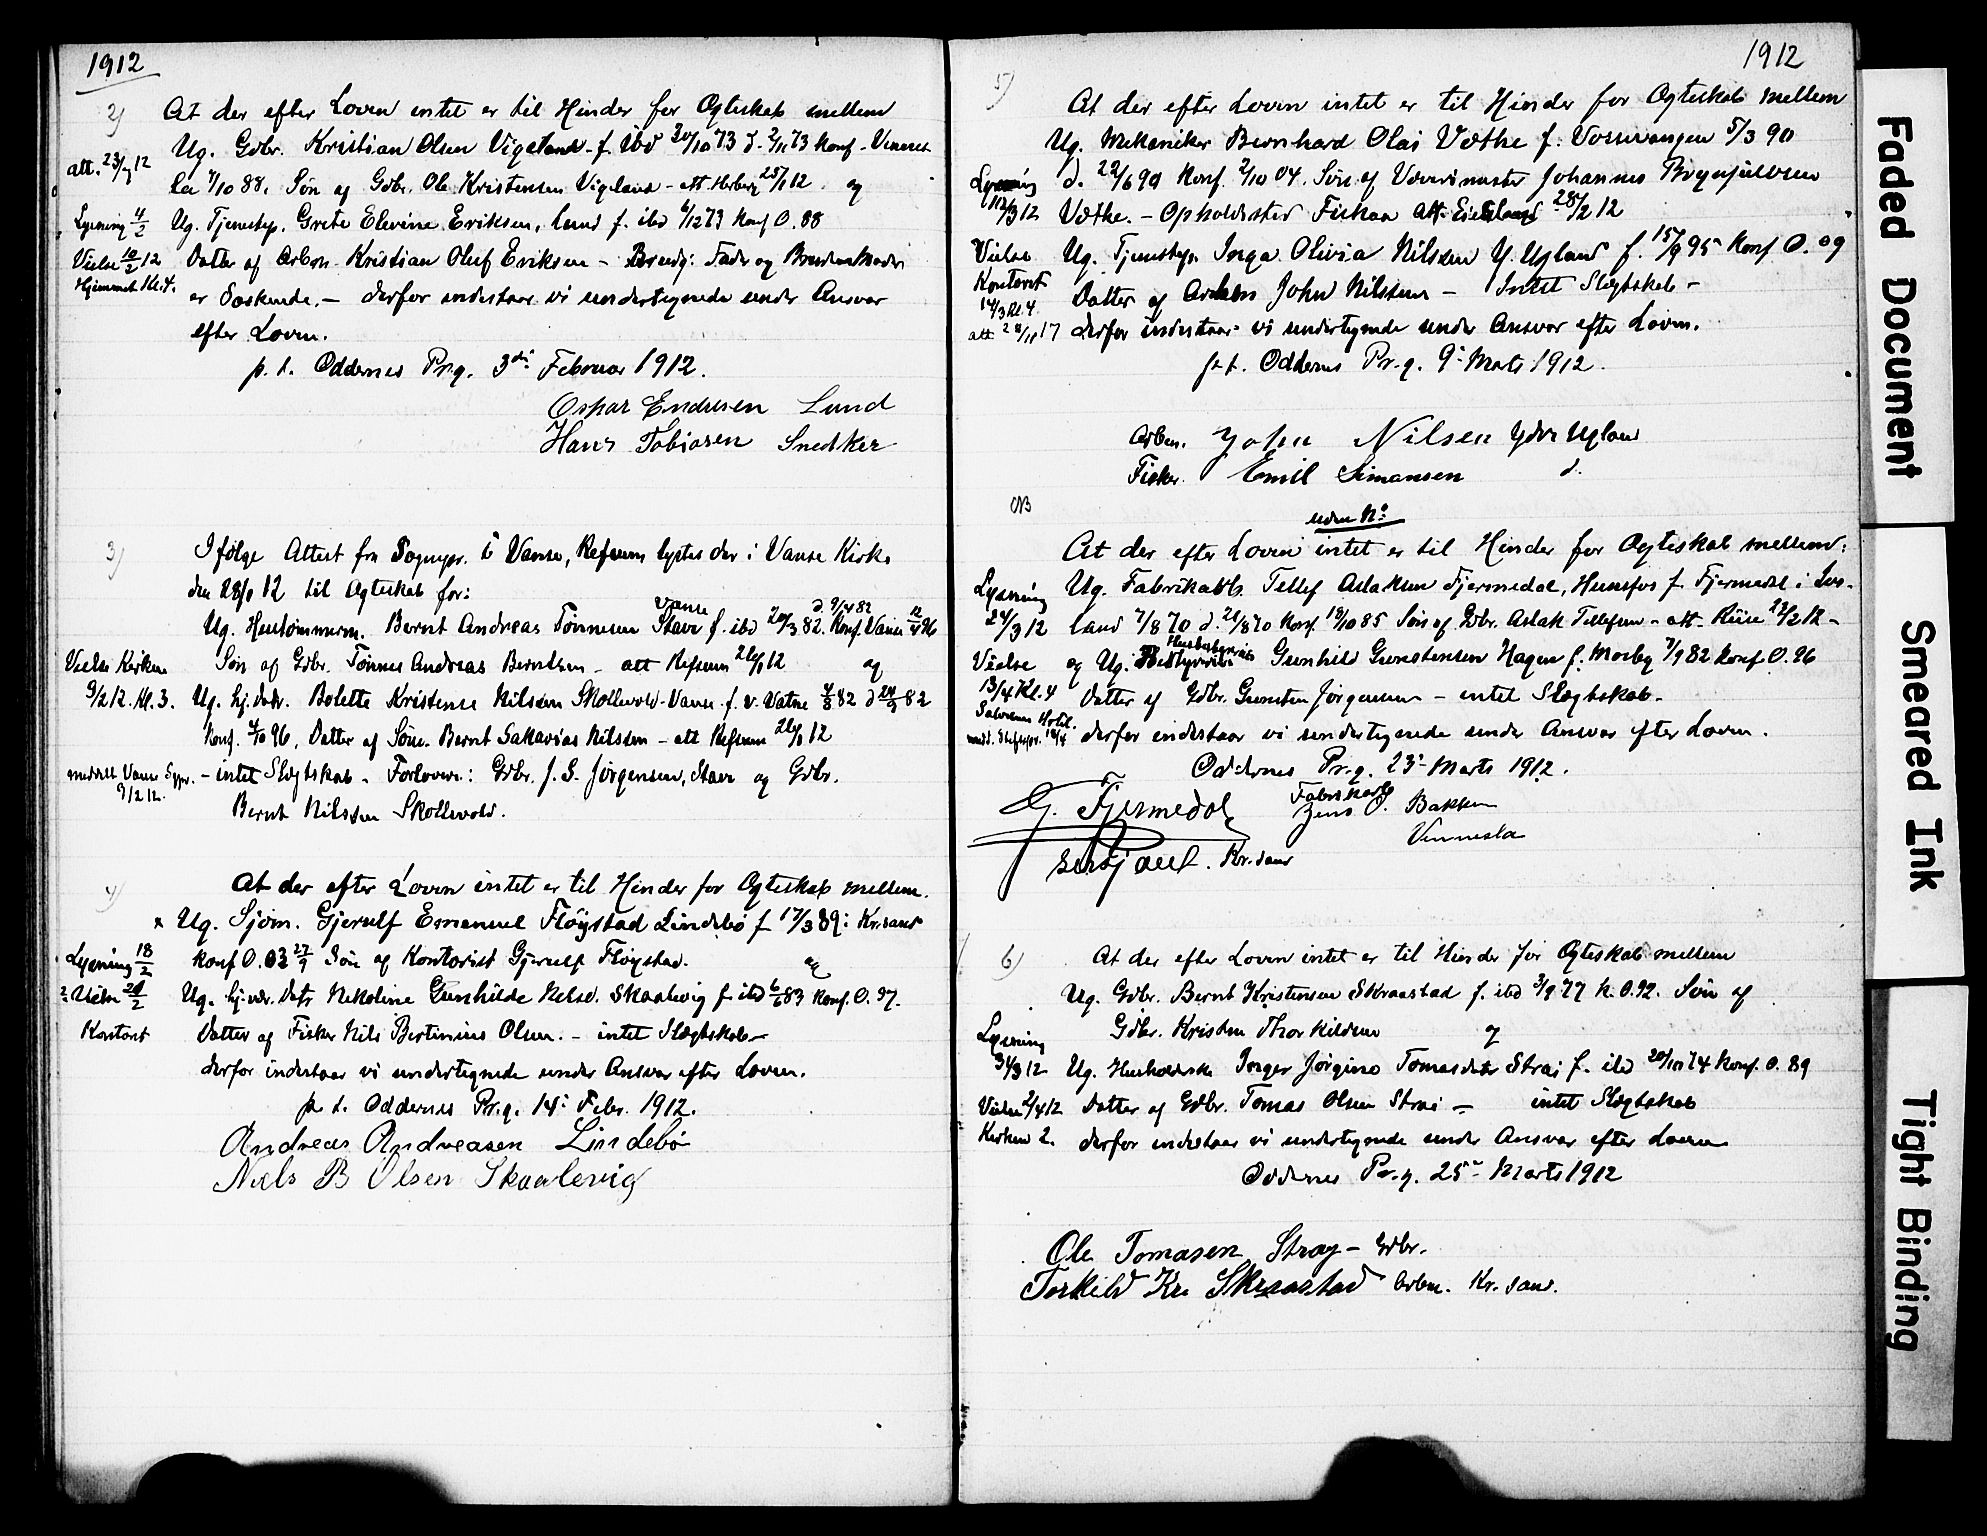 1912
2)
At der efter Loven intet er til Hinder for Ægteskab mellem
Ug. Gdbr. Kristian Olsen Vigeland f. ibd 30/10 73 d. 2/11 73 konf. Vennes-
att. 23/1 12
la 7/10 88. Søn af Gdbr. Ole Kristensen Vigeland - att. 25/1 12 og
Lysning 4/2
Ug. Tjenestep. Grete Elevine Eriksen, Lund f. ibd 6/12 73 konf O. 88
Vielse 10/2 12
Datter af Arbm. Kristian Oluf Eriksen - Brudg: Fader og Brudens Moder
Hjemmet Kl. 4.
er Søskende. - derfor indestaar vi undertegnede under Ansvar
efter Loven.
p. t. Oddernes Prg. 3die Februar 1912.
Oskar Endresen Lund
Hans Tobiasen Snedker
3)
Ifølge Attest fra Sognepr. i Vanse, Refsum lystes der i Vanse Kirke
den 28/1 12 til Ægteskab for:
Vanse d. 9/4 82
Ug. Hustømmerm. Bernt Andreas Tønnesen Stave f. ibd 20/3 82. Konf. Vanse 12/4 96
Vielse Kirken
Søn af Gdbr. Tønnes Andreas Berntsen - att Refsum 26/1 12 og
9/2 12. Kl. 3.
Ug. hj. datr. Bolette Kristense Nilsen Skollevold - Vanse f. v. Vatne 4/8 82 d 24/9 82
konf. 4/10 96, Datter af Søm. Bernt Sakarias Nilsen - att Refsum 26/1 12
meddelt Vanse Sgpr. 9/2 12.
- intet Slægtskab - Forlovere: Gdbr. J. S. Jørgensen, Stave og Gdbr.
Bernt Nilsen Skollevold.
4)
At der efter Loven intet er til Hinder for Ægteskab mellem.
x Ug. Sjøm. Gjerulf Emanuel Fløystad Lindebø f 17/3 89 i Kr.sand
Lysning 18/2
konf O. 03 27/9 Søn af Kontorist Gjerulf Fløystad. og
Vielse 20/2
Ug. hj.vær. Datr Nikoline Gunhilde Nelsd. Skaalevig f. ibd 6/6 83 konf. O. 97.
Kontoret
Datter af Fisker Nils Bertinius Olsen. - intet Slægtskab -
derfor indestaar vi undertegnede under Ansvar efter Loven.
p t. Oddernes Pr.g. 14: Febr. 1912.
Andreas Andreasen Lindebø
Niels B Olsen Skaalevig
1912
5)
At der efter Loven intet er til Hinder for Ægteskab mellem
Ug. Mekaniker Bernhard Olai Vethe f. Vossevangen 5/3 90
Lysning
d. 22/6 90 konf. 2/10 04. Søn af Væverimester Johannes Brynjulvsen
10/3 12
Vethe. - Opholdssted Fiskaa 28/2 12
Vielse
Ug. Tjenestep. Inga Olivia Nilsen Y. Ugland f. 15/9 95 konf O. 09
Kontoret
Datter af Arbm John Nilsen - Intet Slægtskab -
14/3 Kl. 4.
att 28/11 17
derfor indestaar vi undertegnede under Ansvar efter Loven.
p. t. Oddernes Pr. g. 9: Marts 1912.
Arbm. John Nilsen Ydre Ugland
Fisker. Emil Simonsen d.
NB
uden No
At der efter Loven intet er til Hinder for Ægteskab mellem:
Lysning
Ug. Fabrikarb. Tellef Aslaksen Fjermedal, Hunsfos f. Fjermedal i Ive-
24/3 12
land 7/8 70 d. 21/8 70 konf. 18/10 85 Søn af Gdbr. Aslak Tellefsen - att. Riise 22/2 12 -
Vielse
og Ug. Husbestyrerin Gunhild Gunstensen Hagen f. Mosby 7/9 82 konf O. 96
13/4 Kl. 4
Datter af Gdbr. Gunsten Jørgensen - intet Slægtskab.
derfor indestaar vi undertegnede under Ansvar efter Loven.
Oddernes Pr.g. 23: Marts 1912.
G. Fjermedal Fabrikarb Jens O. Bakken
Vennesla
Kr.sand
6)
At der efter Loven intet er til Hinder for Ægteskab mellem
Ug. Gdbr. Bernt Kristensen Skraastad f. ibd 3/9 77 k. O. 92. Søn af
Gdbr. Kristen Thorkildsen og
Lysning
31/3 12
Ug. Husholderske Inger Jørgine Tomasdatr Strai f. ibd 20/10 74 konf. O. 89
Vielse 2/4 12
Datter af Gdbr. Tomas Olsen Strai - intet Slægtskab
Kirken 2.
derfor indestaar vi undertegnede under Ansvar efter Loven
Oddernes Pr.g. 25: Marts 1912
Ole Tomasen Stray - Gdbr.
Torkild Kr. Skraastad Arbm. Kr.sand.
Faded Document
Smeared Ink
Tight Binding